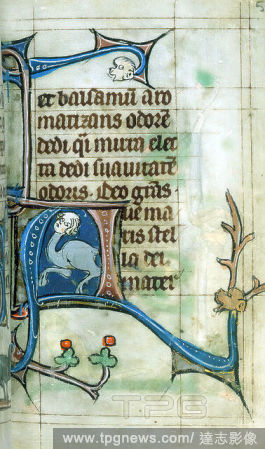 et balsamū aro
matizans odorē
dedi qī mirra elec
ta dedi suauitatē
odoris. Deo gr̄as
Aue ma
ris stel
la dei
mater
5
TPG
www.tpgnews.com / 達志影像